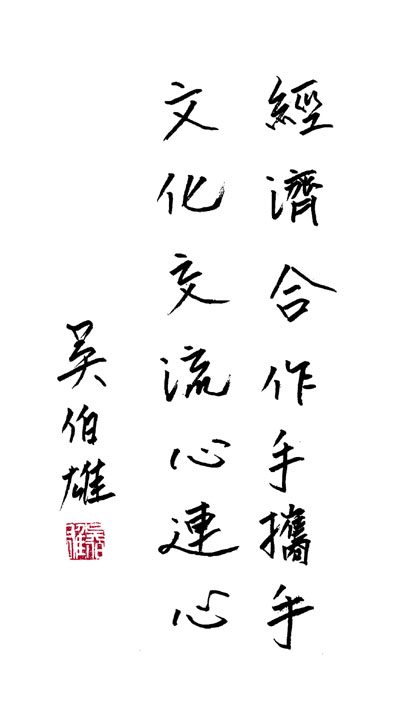 經濟合作手攜手
文化交流心連心
吳伯雄